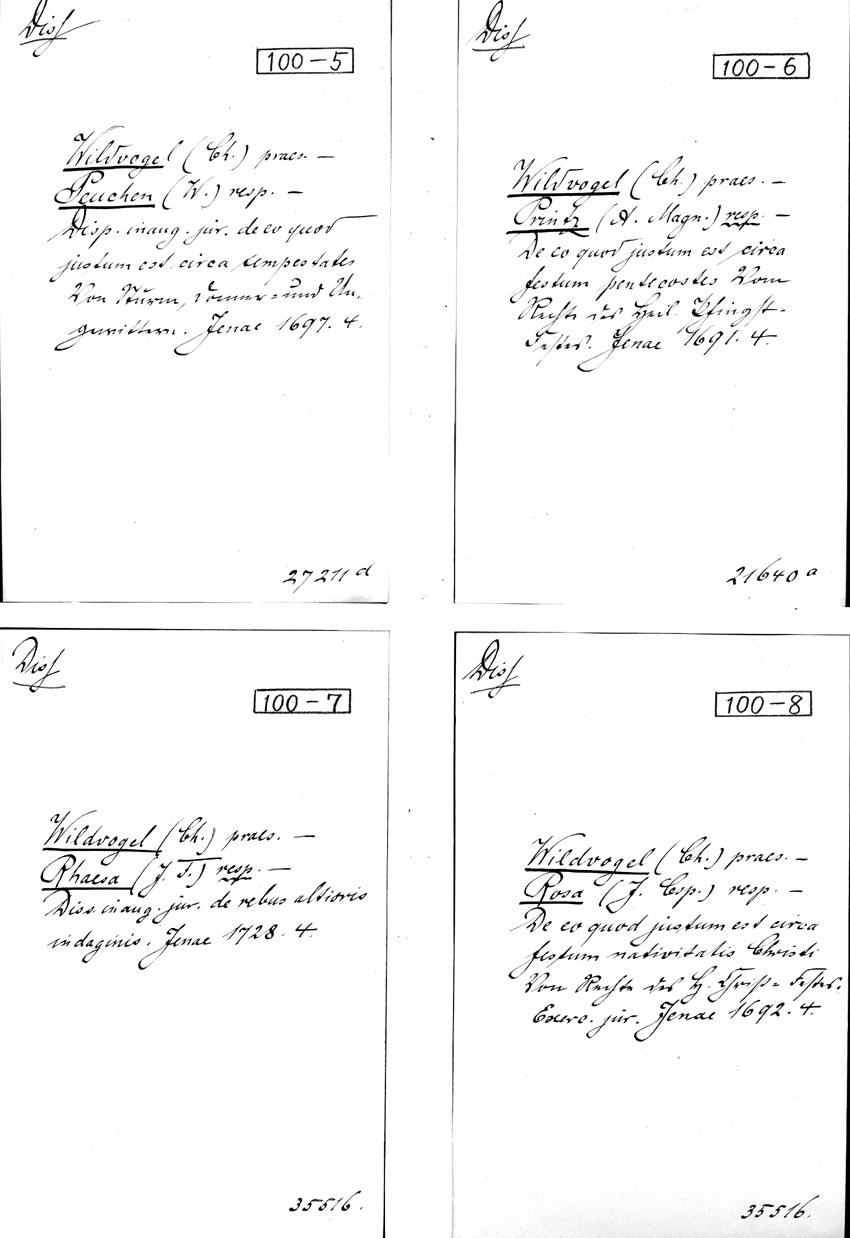 Diss
100-5
Wildvogel (Ch.) praes. —
Peuchen (W.) resp. —
Disp. inaug. jur. de eo quod
justum est circa tempestates
Von Sturm, Donner= und Un-
gewittern. Jenae 1697. 4.
27211 d
Diss
100-6
Wildvogel (Ch.) praes. —
Printz (A. Magn.) resp. —
De eo quod justum est circa
festum pentecostes Vom
Rechte des Heil. Pfingst-
Festes. Jenae 1691. 4.
21640 a
Diss
100-7
Wildvogel (Ch.) praes. —
Rhaesa (J. T.) resp. —
Diss. inaug. jur. de rebus altioris
indaginis. Jenae 1728. 4.
35516.
Diss
100-8
Wildvogel (Ch.) praes. —
Rosa (J. Csp.) resp. —
De eo quod justum est circa
festum nativitatis Christi
Von Rechte des H. Christ= Festes.
Exerc. jur. Jenae 1692. 4.
35516.